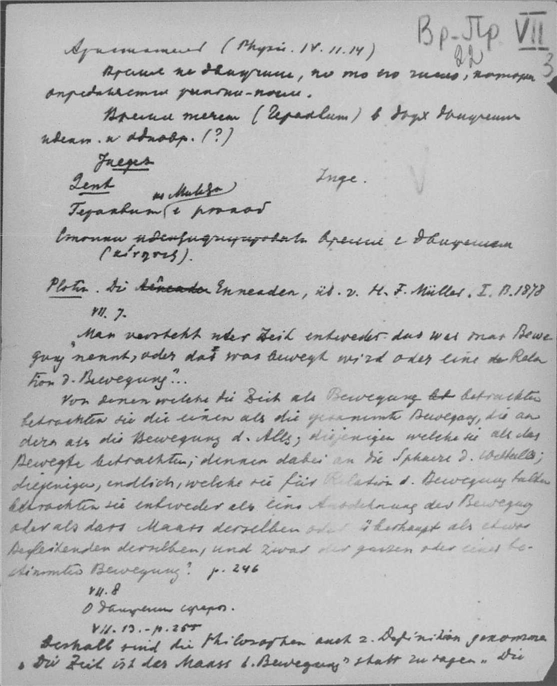 Вр-Пр VII
22 3
Аристотель (Physic. IV. 11. 14)
Время не движение, но то его число, которым
определяется раньше-позже.
Время течет (Гераклит) в двух движениях
идент. и одновр. (?)
Jaeger
Zent Inge.
Гераклит с
Стоики идентифицировали время с движением
(κίνησις).
Plotin. Die Enneaden, üb. v. H. F. Müller. I. B. 1878
VII. 7.
"Man versteht unter Zeit entweder das was man Bewe-
gung nennt, oder das was bewegt wird oder eine der Rela-
tion d. Bewegung"...
Von denen welche die Zeit als Bewegung betrachten
betrachten sie die einen als die gesammte Bewegung, die an-
dern als die Bewegung d. Alls; diejenigen welche sie als das
Bewegte betrachten, denken dabei an die Sphaere d. Weltalls;
diejenigen, endlich, welche sie für Relation d. Bewegung halten
betrachten sie entweder als eine Ausdehnung der Bewegung
oder als das Maass derselben oder überhaupt als etwas
Begleitenden derselben, und zwar der ganzen oder einer be-
stimmten Bewegung? p. 246
VII. 8
О движении сферы.
VII. 13. - p. 255
Deshalb sind die Philosophen auch z. Definition gekommen
"Die Zeit ist das Maass d. Bewegung" statt zu sagen "Die